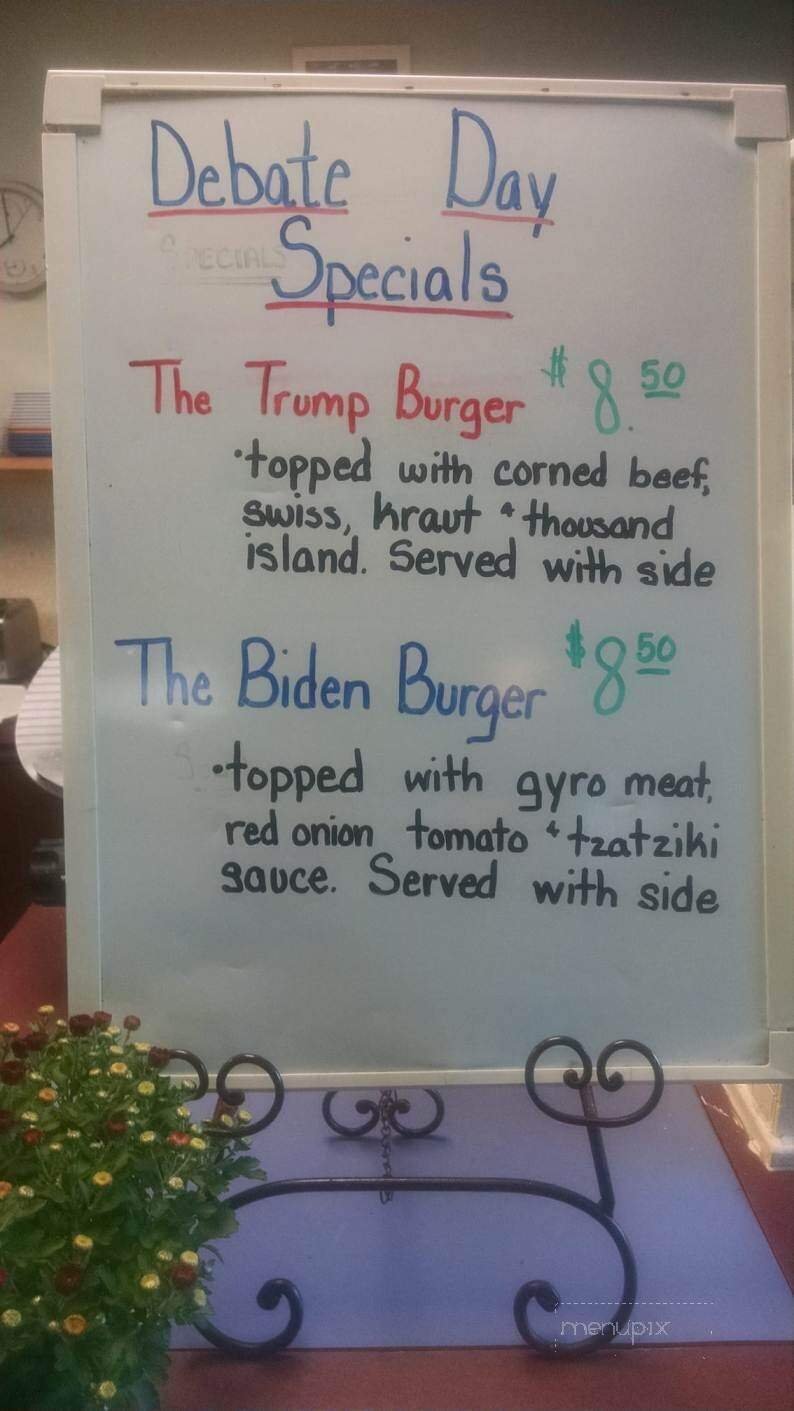 Debate Day
SPECIALS
Specials
The Trump Burger $8.50
•topped with corned beef,
swiss, kraut & thousand
island. Served with side
The Biden Burger $8 50
•topped with gyro meat,
red onion tomato & tzatziki
sauce. Served with side
menupix